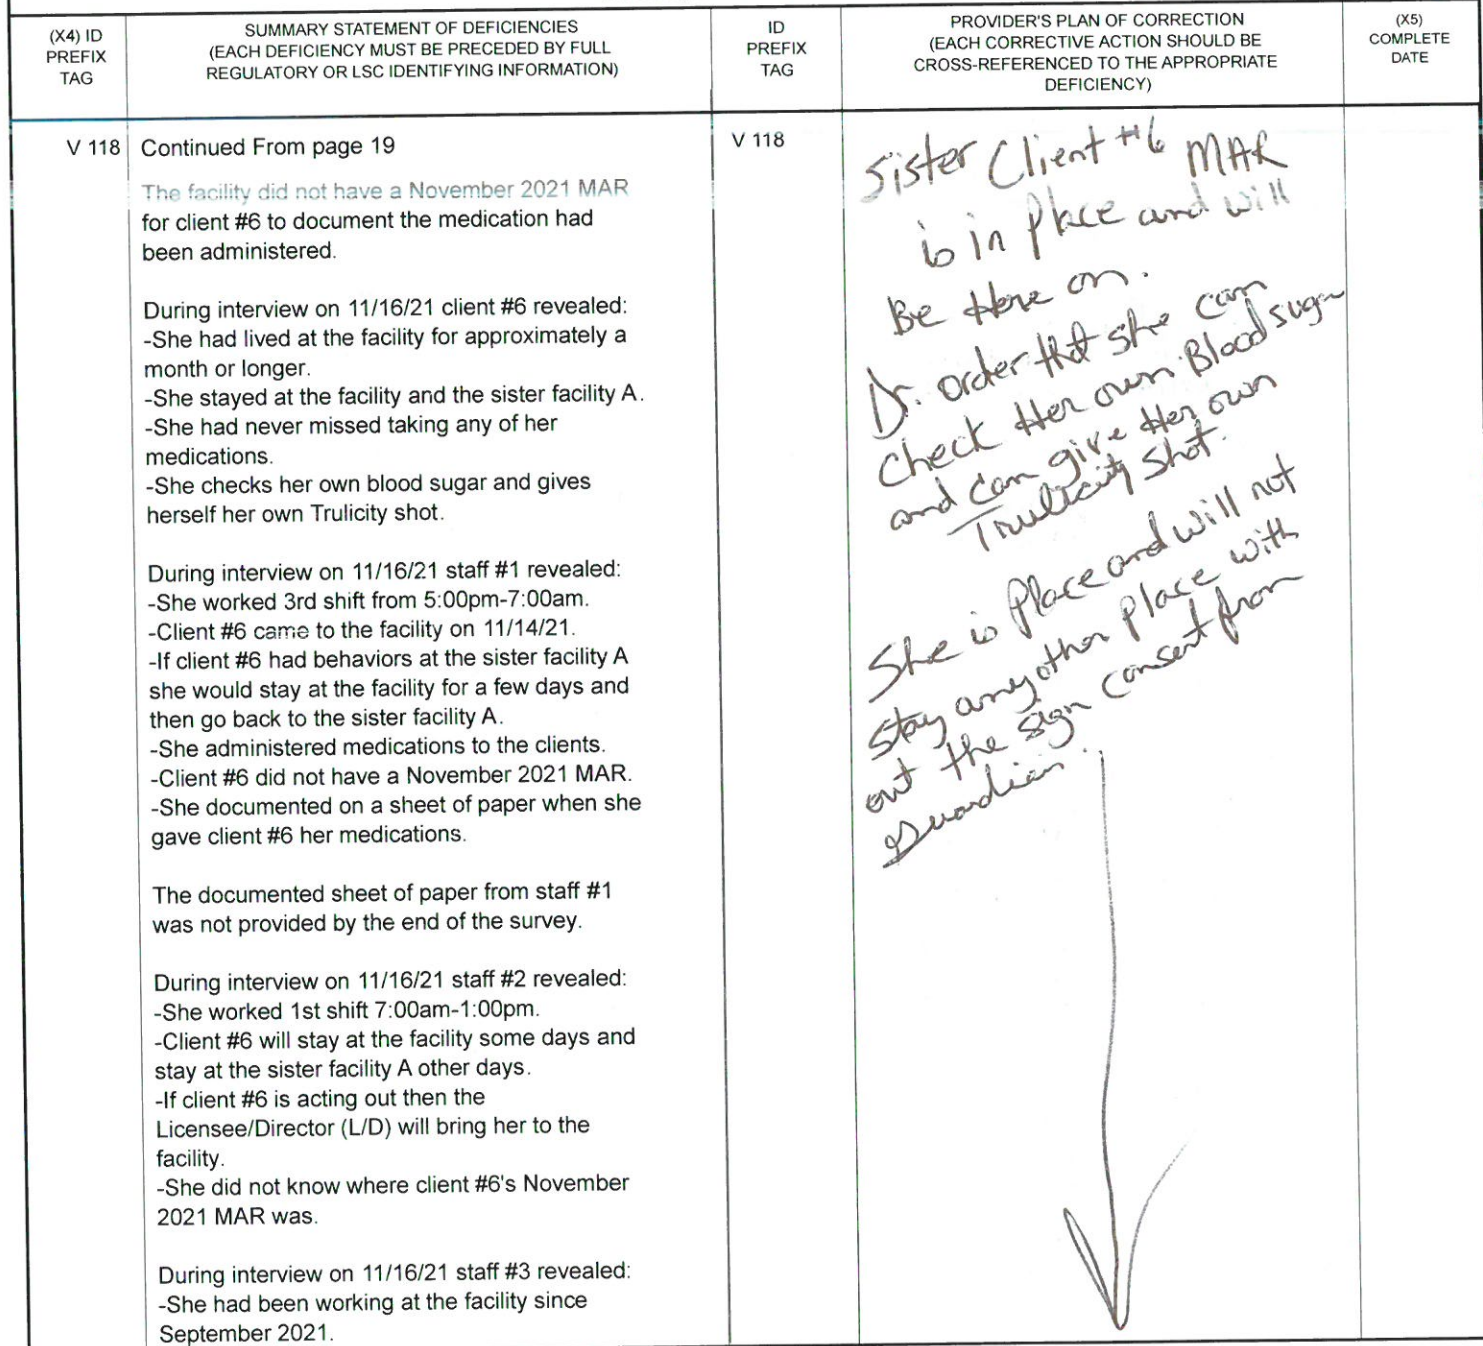 (X4) ID
PREFIX
TAG
SUMMARY STATEMENT OF DEFICIENCIES
(EACH DEFICIENCY MUST BE PRECEDED BY FULL
REGULATORY OR LSC IDENTIFYING INFORMATION)
ID
PREFIX
TAG
PROVIDER'S PLAN OF CORRECTION
(EACH CORRECTIVE ACTION SHOULD BE
CROSS-REFERENCED TO THE APPROPRIATE
DEFICIENCY)
(X5)
COMPLETE
DATE
V 118
Continued From page 19
The facility did not have a November 2021 MAR
for client #6 to document the medication had
been administered.
During interview on 11/16/21 client #6 revealed:
-She had lived at the facility for approximately a
month or longer.
-She stayed at the facility and the sister facility A.
-She had never missed taking any of her
medications.
-She checks her own blood sugar and gives
herself her own Trulicity shot.
During interview on 11/16/21 staff #1 revealed:
-She worked 3rd shift from 5:00pm-7:00am.
-Client #6 came to the facility on 11/14/21.
-If client #6 had behaviors at the sister facility A
she would stay at the facility for a few days and
then go back to the sister facility A.
-She administered medications to the clients.
-Client #6 did not have a November 2021 MAR.
-She documented on a sheet of paper when she
gave client #6 her medications.
The documented sheet of paper from staff #1
was not provided by the end of the survey.
During interview on 11/16/21 staff #2 revealed:
-She worked 1st shift 7:00am-1:00pm.
-Client #6 will stay at the facility some days and
stay at the sister facility A other days.
-If client #6 is acting out then the
Licensee/Director (L/D) will bring her to the
facility.
-She did not know where client #6's November
2021 MAR was.
During interview on 11/16/21 staff #3 revealed:
-She had been working at the facility since
September 2021.
V 118
Sister Client #6 MAR
is in Place and will
Be Here on.
Dr. order that she can
check Her own Blood sugar
and can give Her own
Trulicity Shot.
She is Place and will not
stay any other place with
out the sign consent from
Guardian.